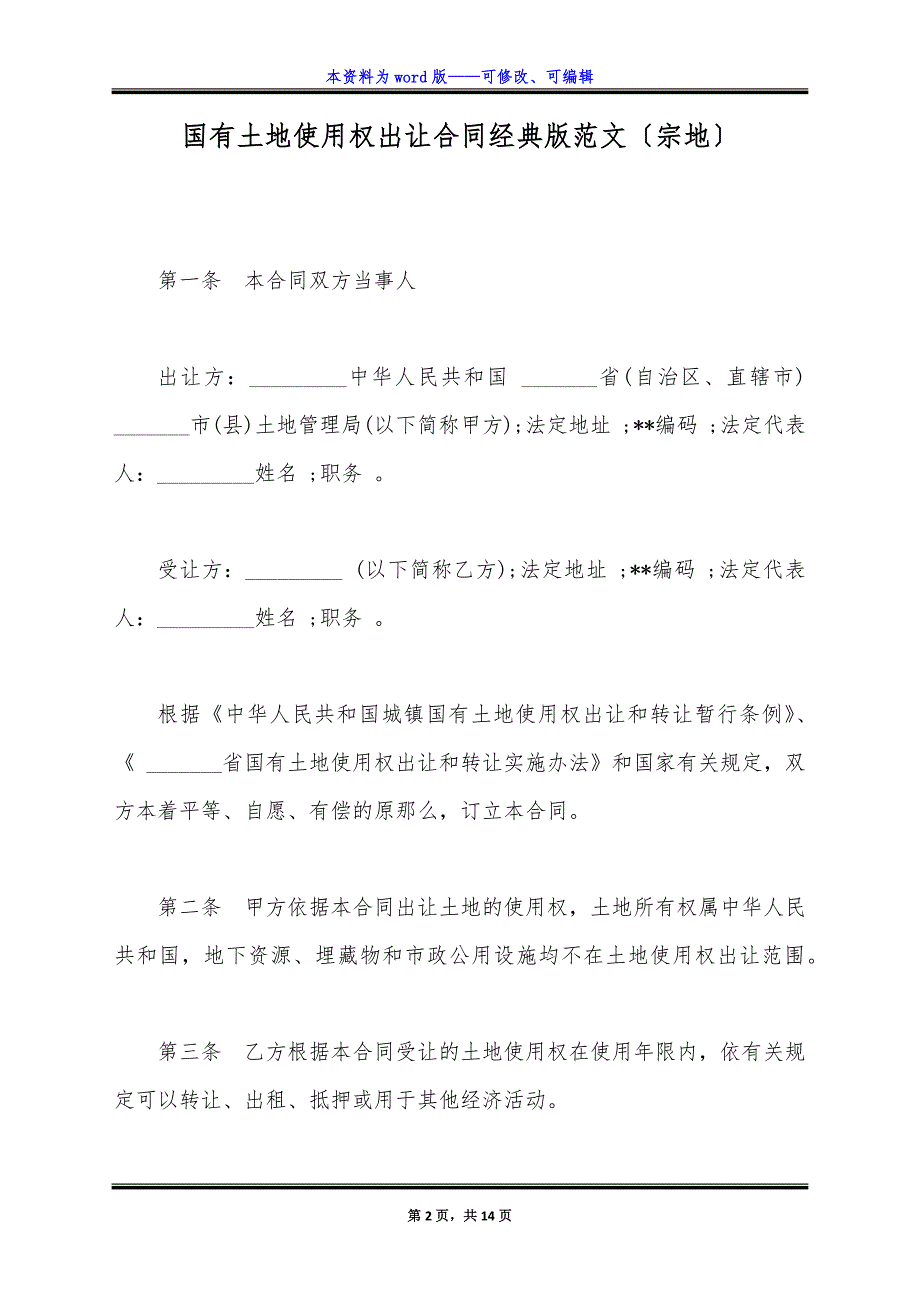 本资料为 word 版——可修改、可编辑
国有土地使用权出让合同经典版范文〔宗地〕
第一条　本合同双方当事人
出让方：_________中华人民共和国 _______省(自治区、直辖市)
_______市(县)土地管理局(以下简称甲方);法定地址 ;**编码 ;法定代表
人：_________姓名 ;职务 。
受让方：_________ (以下简称乙方);法定地址 ;**编码 ;法定代表
人：_________姓名 ;职务 。
根据《中华人民共和国城镇国有土地使用权出让和转让暂行条例》、
《 _______省国有土地使用权出让和转让实施办法》和国家有关规定，双
方本着平等、自愿、有偿的原那么，订立本合同。
第二条　甲方依据本合同出让土地的使用权，土地所有权属中华人民
共和国，地下资源、埋藏物和市政公用设施均不在土地使用权出让范围。
第三条　乙方根据本合同受让的土地使用权在使用年限内，依有关规
定可以转让、出租、抵押或用于其他经济活动。
第 2 页，共 14 页